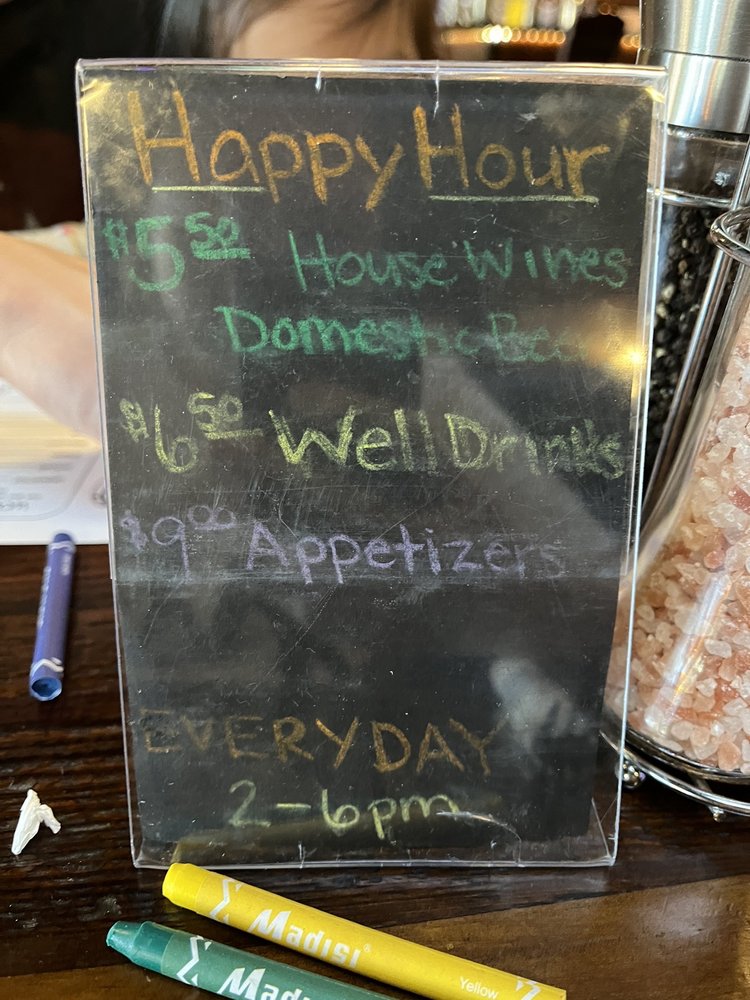 Happy Hour
$5.50 House Wines
Domestic Beer
$6.50 Well Drinks
$9.00 Appetizers
EVERYDAY
2-6pm
MADISI®
Yellow
MADISI